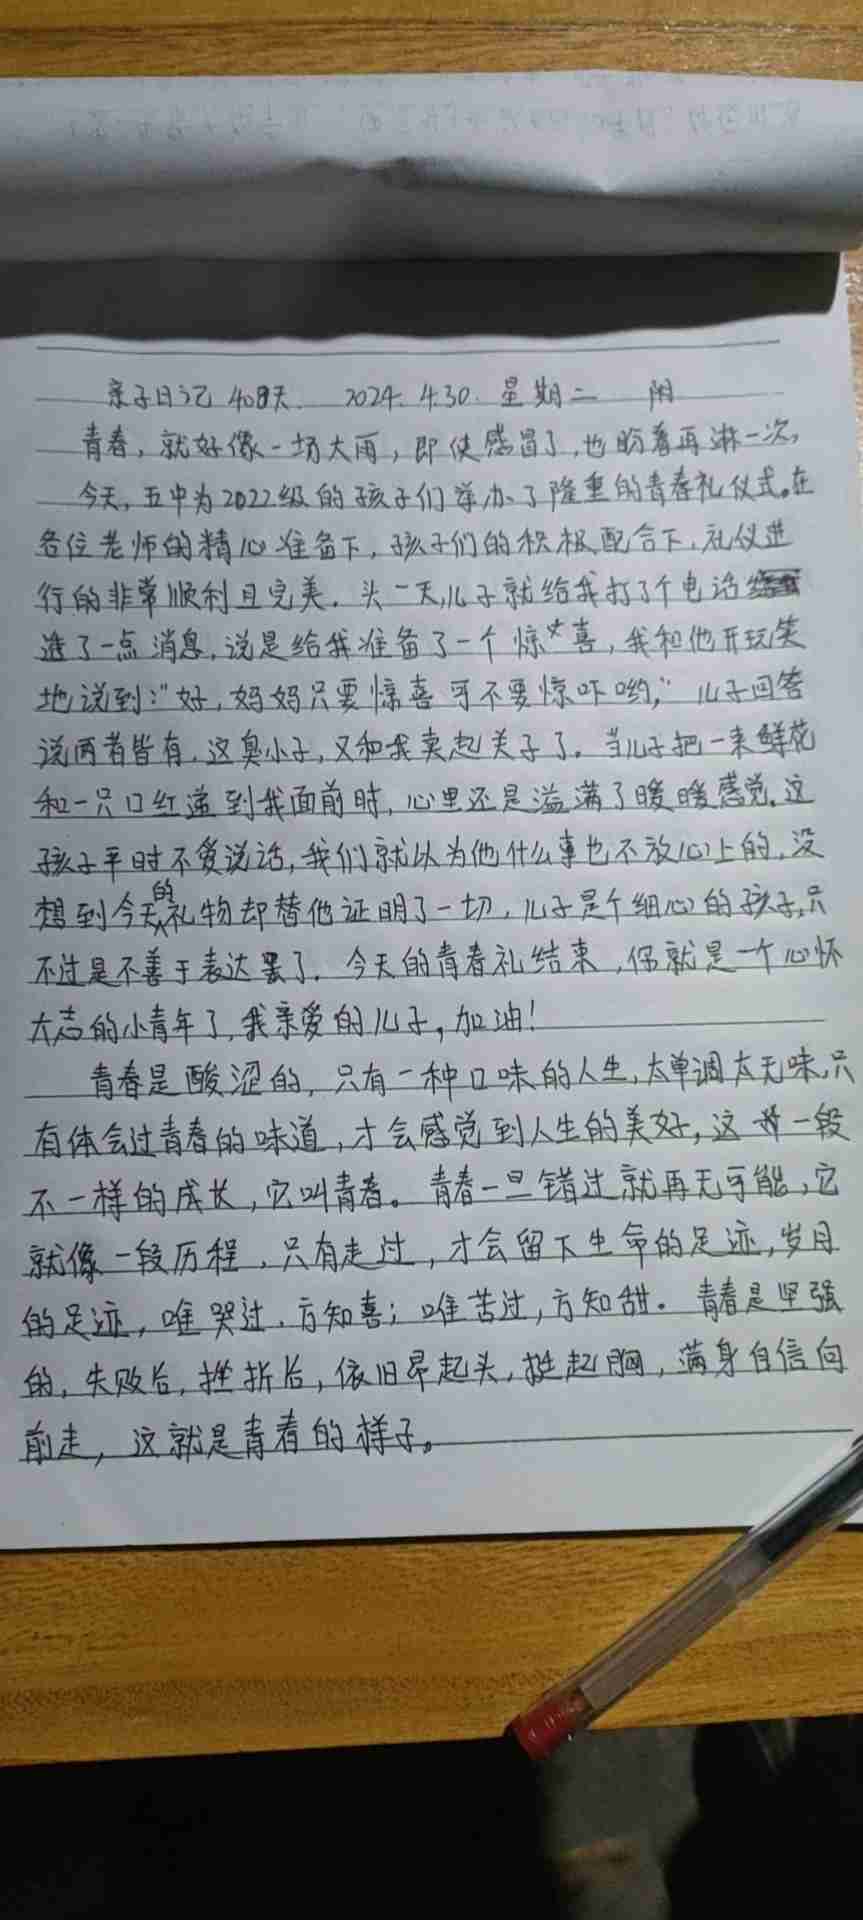 亲子日记 408天. 2024.4.30. 星期二 阴
青春，就好像一场大雨，即使感冒了，也盼着再淋一次，
今天，五中为2022级的孩子们举办了隆重的青春礼仪式。在
各位老师的精心准备下，孩子们的积极配合下，礼仪进
行的非常顺利且完美。头一天，儿子就给我打了个电话
透了一点消息，说是给我准备了一个惊喜，我和他开玩笑
地说到：“好，妈妈只要惊喜可不要惊吓哟，”儿子回答
说两者皆有，这臭小子，又和我卖起关子了。当儿子把一束鲜花
和一只口红递到我面前时，心里还是溢满了暖暖感觉，这
孩子平时不爱说话，我们就以为他什么事也不放心上的，没
想到今天的礼物却替他证明了一切，儿子是个细心的孩子，只
不过是不善于表达罢了。今天的青春礼结束，你就是一个心怀
大志的小青年了，我亲爱的儿子，加油！
青春是酸涩的，只有一种口味的人生，太单调太无味，只
有体会过青春的味道，才会感觉到人生的美好，这一段
不一样的成长，它叫青春。青春一旦错过就再无可能，它
就像一段历程，只有走过，才会留下生命的足迹，岁月
的足迹，唯哭过，方知喜；唯苦过，方知甜。青春是坚强
的，失败后，挫折后，依旧昂起头，挺起胸，满身自信向
前走，这就是青春的样子。